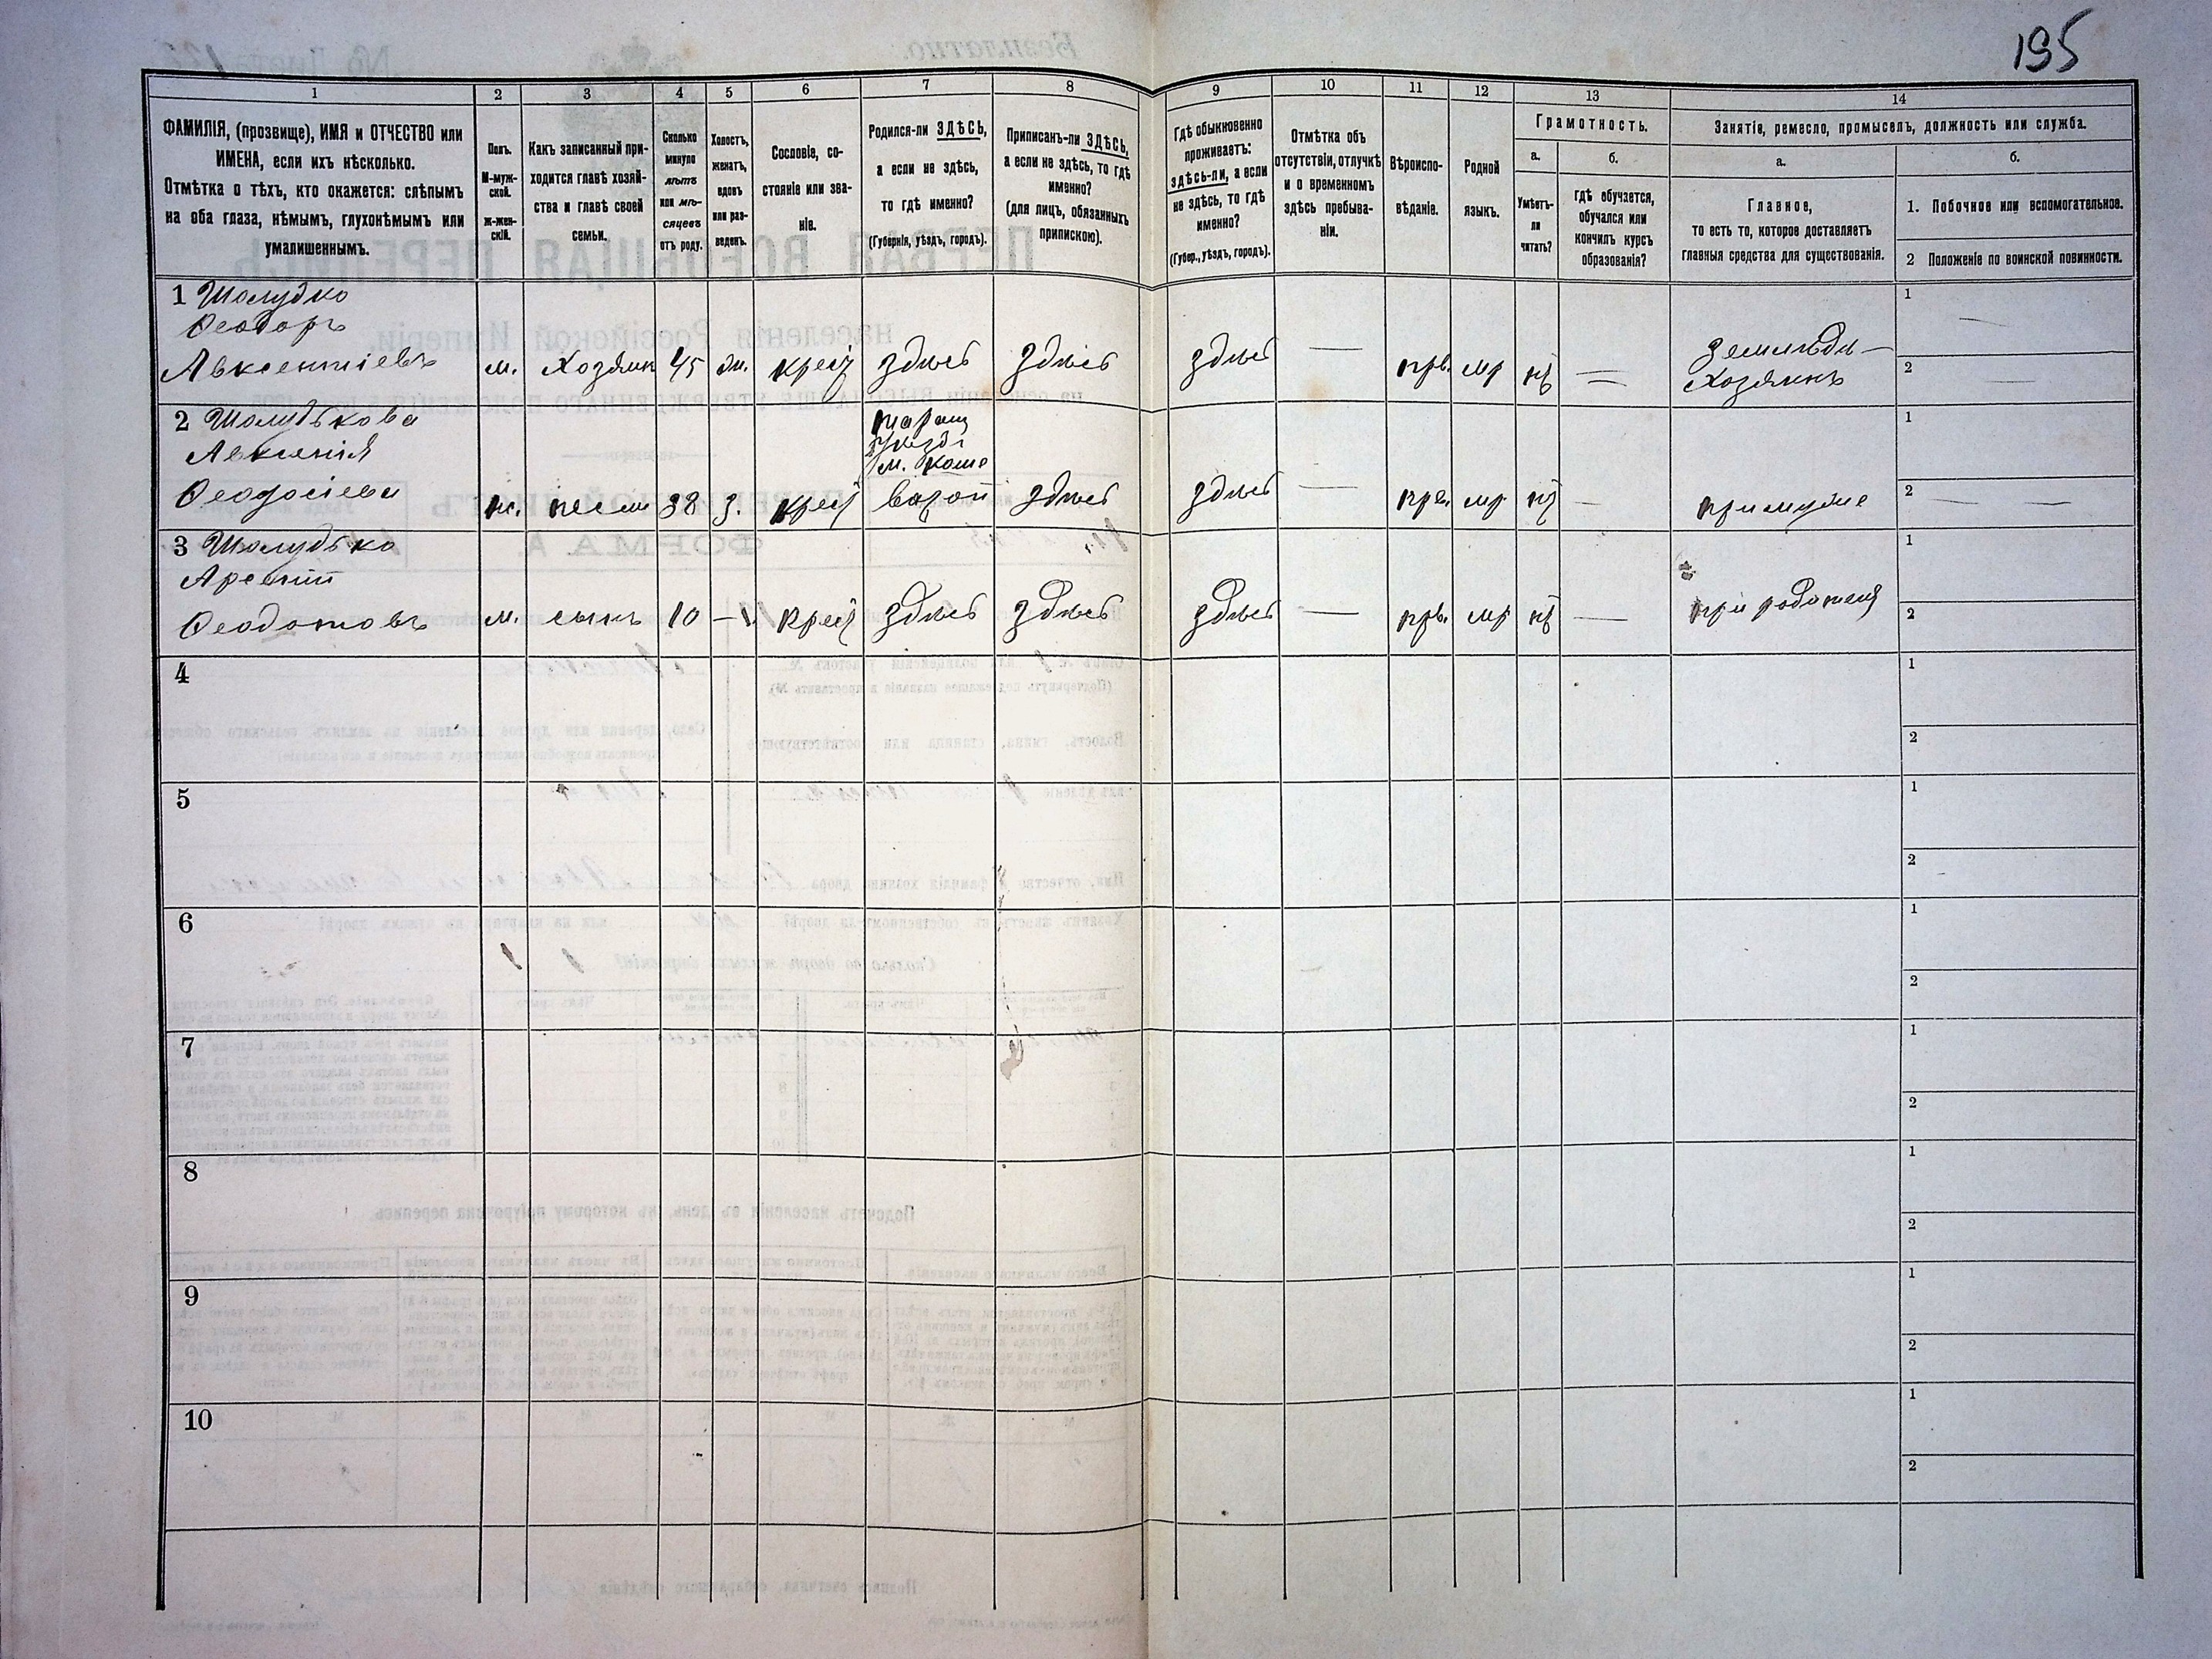 195
1
2
3
4
5
6
7
8
9
10
11
12
13
14
ФАМИЛІЯ, (прозвище), ИМЯ и ОТЧЕСТВО или
ИМЕНА, если ихъ нѣсколько.
Отмѣтка о тѣхъ, кто окажется: слѣпымъ
на оба глаза, нѣмымъ, глухонѣмымъ или
умалишеннымъ.
Полъ.
М-муж-
ской.
ж-жен-
скій.
Какъ записанный при-
ходится главѣ хозяй-
ства и главѣ своей
семьи.
Сколько
минуло
лѣтъ
или мѣ-
сяцевъ
отъ роду.
Холостъ,
женатъ,
вдовъ
или раз-
веденъ.
Сословіе, со-
стояніе или зва-
ніе.
Родился-ли ЗДѢСЬ,
а если не здѣсь,
то гдѣ именно?
(Губернія, уѣздъ, городъ).
Приписанъ-ли ЗДѢСЬ,
а если не здѣсь, то гдѣ
именно?
(для лицъ, обязанныхъ
припискою).
Гдѣ обыкновенно
проживаетъ:
здѣсь-ли, а если
не здѣсь, то гдѣ
именно?
(Губер., уѣздъ, городъ).
Отмѣтка объ
отсутствіи, отлучкѣ
и о временномъ
здѣсь пребыва-
ніи.
Вѣроиспо-
вѣданіе.
Родной
языкъ.
Грамотность.
а.
б.
Умѣетъ-
ли
читать?
Гдѣ обучается,
обучался или
кончилъ курсъ
образованія?
Занятіе, ремесло, промыселъ, должность или служба.
а.
б.
Главное,
то есть то, которое доставляетъ
главныя средства для существованія.
1. Побочное или вспомогательное.
2 Положеніе по воинской повинности.
1 Шолудко
Ѳеодоръ
Авксентіевъ м. Хозяин 45 ж. крест здѣсь здѣсь здѣсь — прв. мр нѣ —
Земледѣл—
Хозяинъ
1
2
2 Шолудькова
Авксенія
Ѳеодосіева ж. 38 З. крест
Таращ
уѣзд
м. Коше
ватой здѣсь здѣсь — прв. мр нѣ — при мужѣ
1
2
3 Шолудько
Арсеній
м. сынъ 10 — крест здѣсь здѣсь здѣсь — прв. мр нѣ — при родителя
1
2
4
1
2
5
1
2
6
1
2
7
1
2
8
1
2
9
1
2
10
1
2